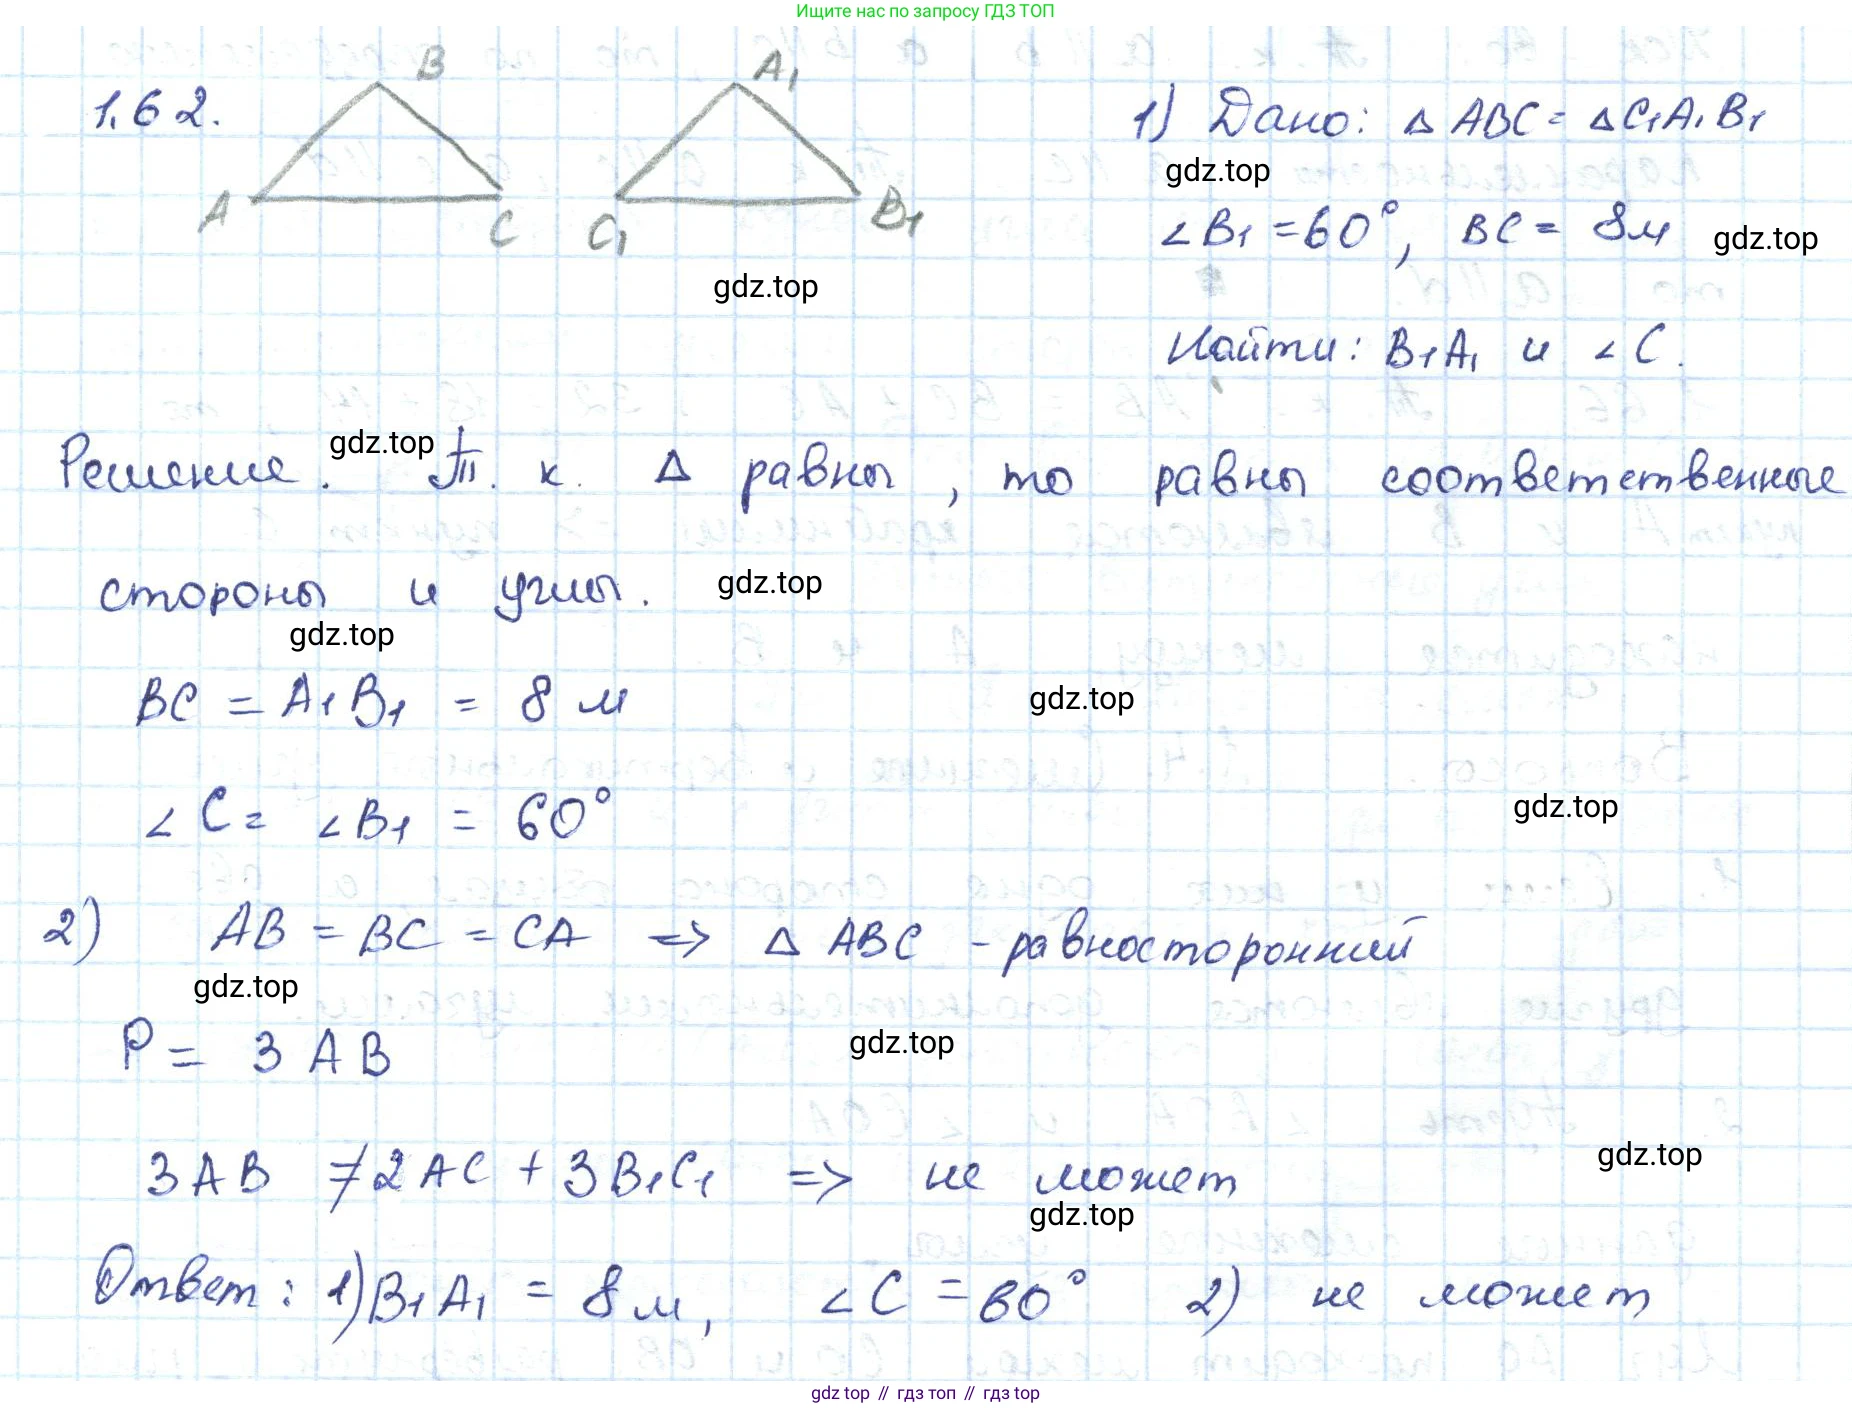 Ищите нас по запросу ГДЗ ТОП
1.62.
B
A
C
A₁
C₁
B₁
1) Дано: △ ABC = △C₁A₁B₁
gdz.top
∠B₁ = 60°, BC = 8м
gdz.top
gdz.top
Найти: B₁A₁ и ∠C.
gdz.top
Решение. Т. к. △ равны, то равны соответственные
стороны и углы.
gdz.top
gdz.top
BC = A₁B₁ = 8 м
gdz.top
∠C = ∠B₁ = 60°
gdz.top
2) AB = BC = CA => △ ABC - равносторонний
gdz.top
P = 3 AB
gdz.top
3AB ≠ 2AC + 3B₁C₁ => не может
gdz.top
gdz.top
Ответ: 1) B₁A₁ = 8м, ∠C = 60° 2) не может
gdz.top // гдз топ // гдз top